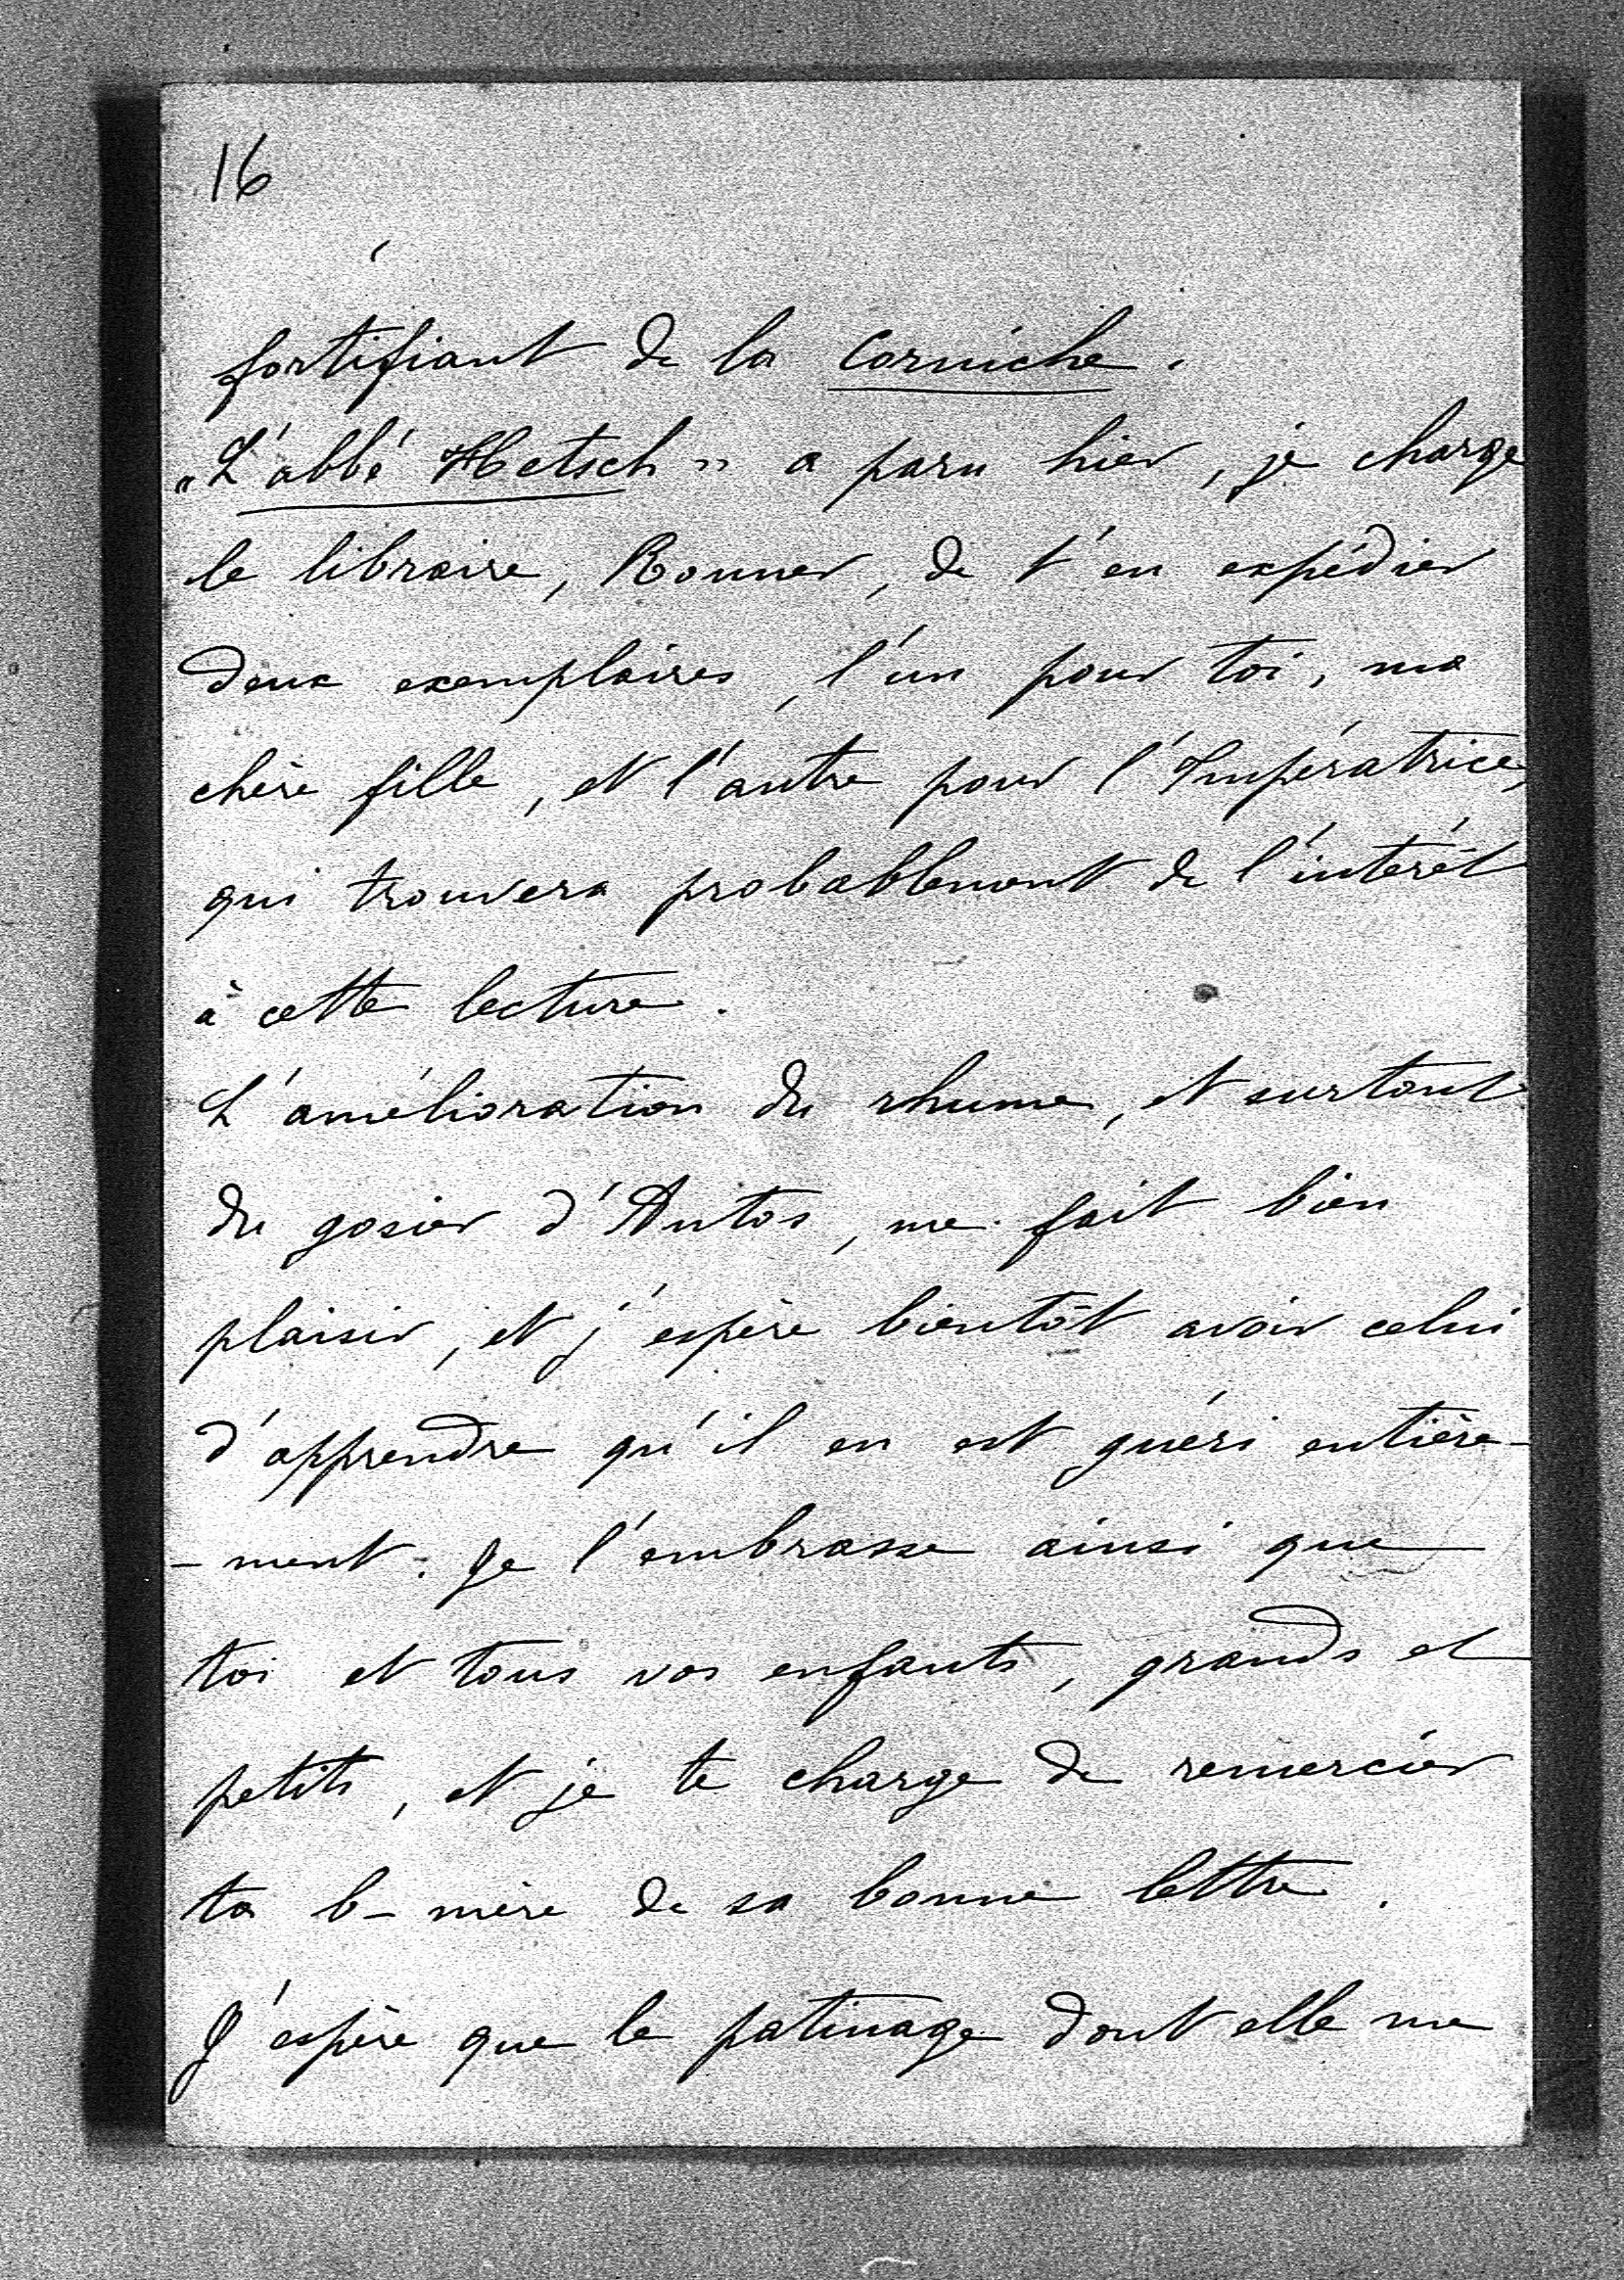 16
fortifiant de la Corniche.
„L'abbé Hetsch" a paru hier, je charge
le libraire, Ronner, de t'en expédier
deux exemplaires, l'un pour toi, ma
chère fille, et l'autre pour l'Impératrice,
qui trouvera probablement de l'intérêt
à cette lecture.
L'amélioration du rhume, et surtout
du gosier d'Antos, me fait bien
plaisir, et j'espère bientôt avoir celui
d'apprendre qu'il en est guéri entière-
-ment. Je l'embrasse ainsi que
toi et tous vos enfants, grands et
petits, et je te charge de remercier
ta b-mère de sa bonne lettre.
J'espère que le patinage dont elle me